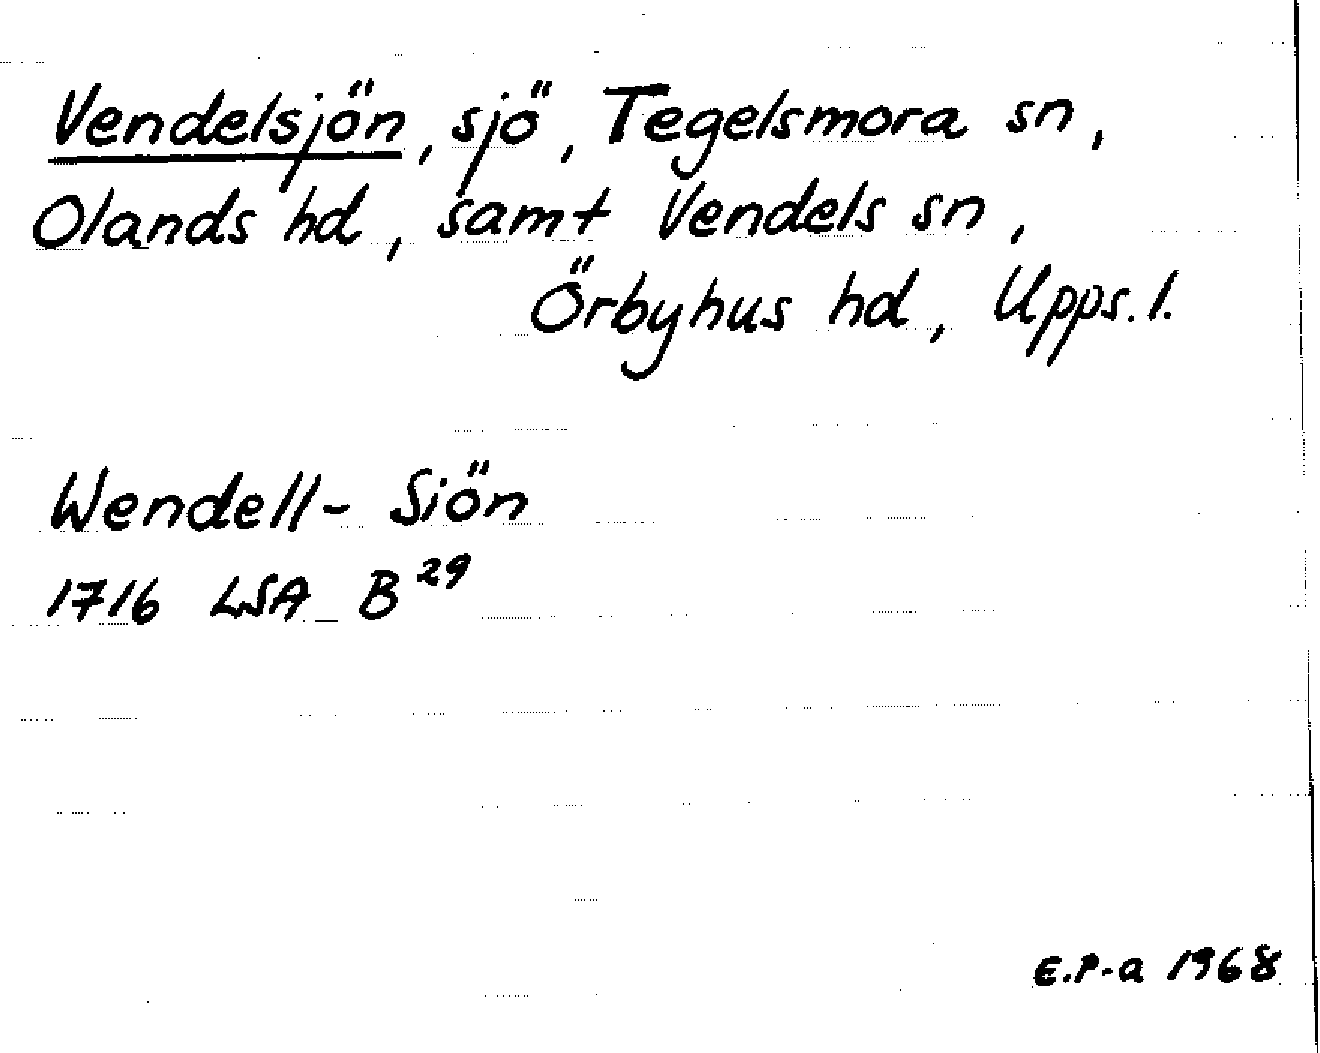 Vendelsjön, sjö, Tegelsmora sn,
Olands hd, samt Vendels sn,
Örbyhus hd, Upps. l.
Wendell- Siön
1716 LSA B²⁹
E.P-a 1968